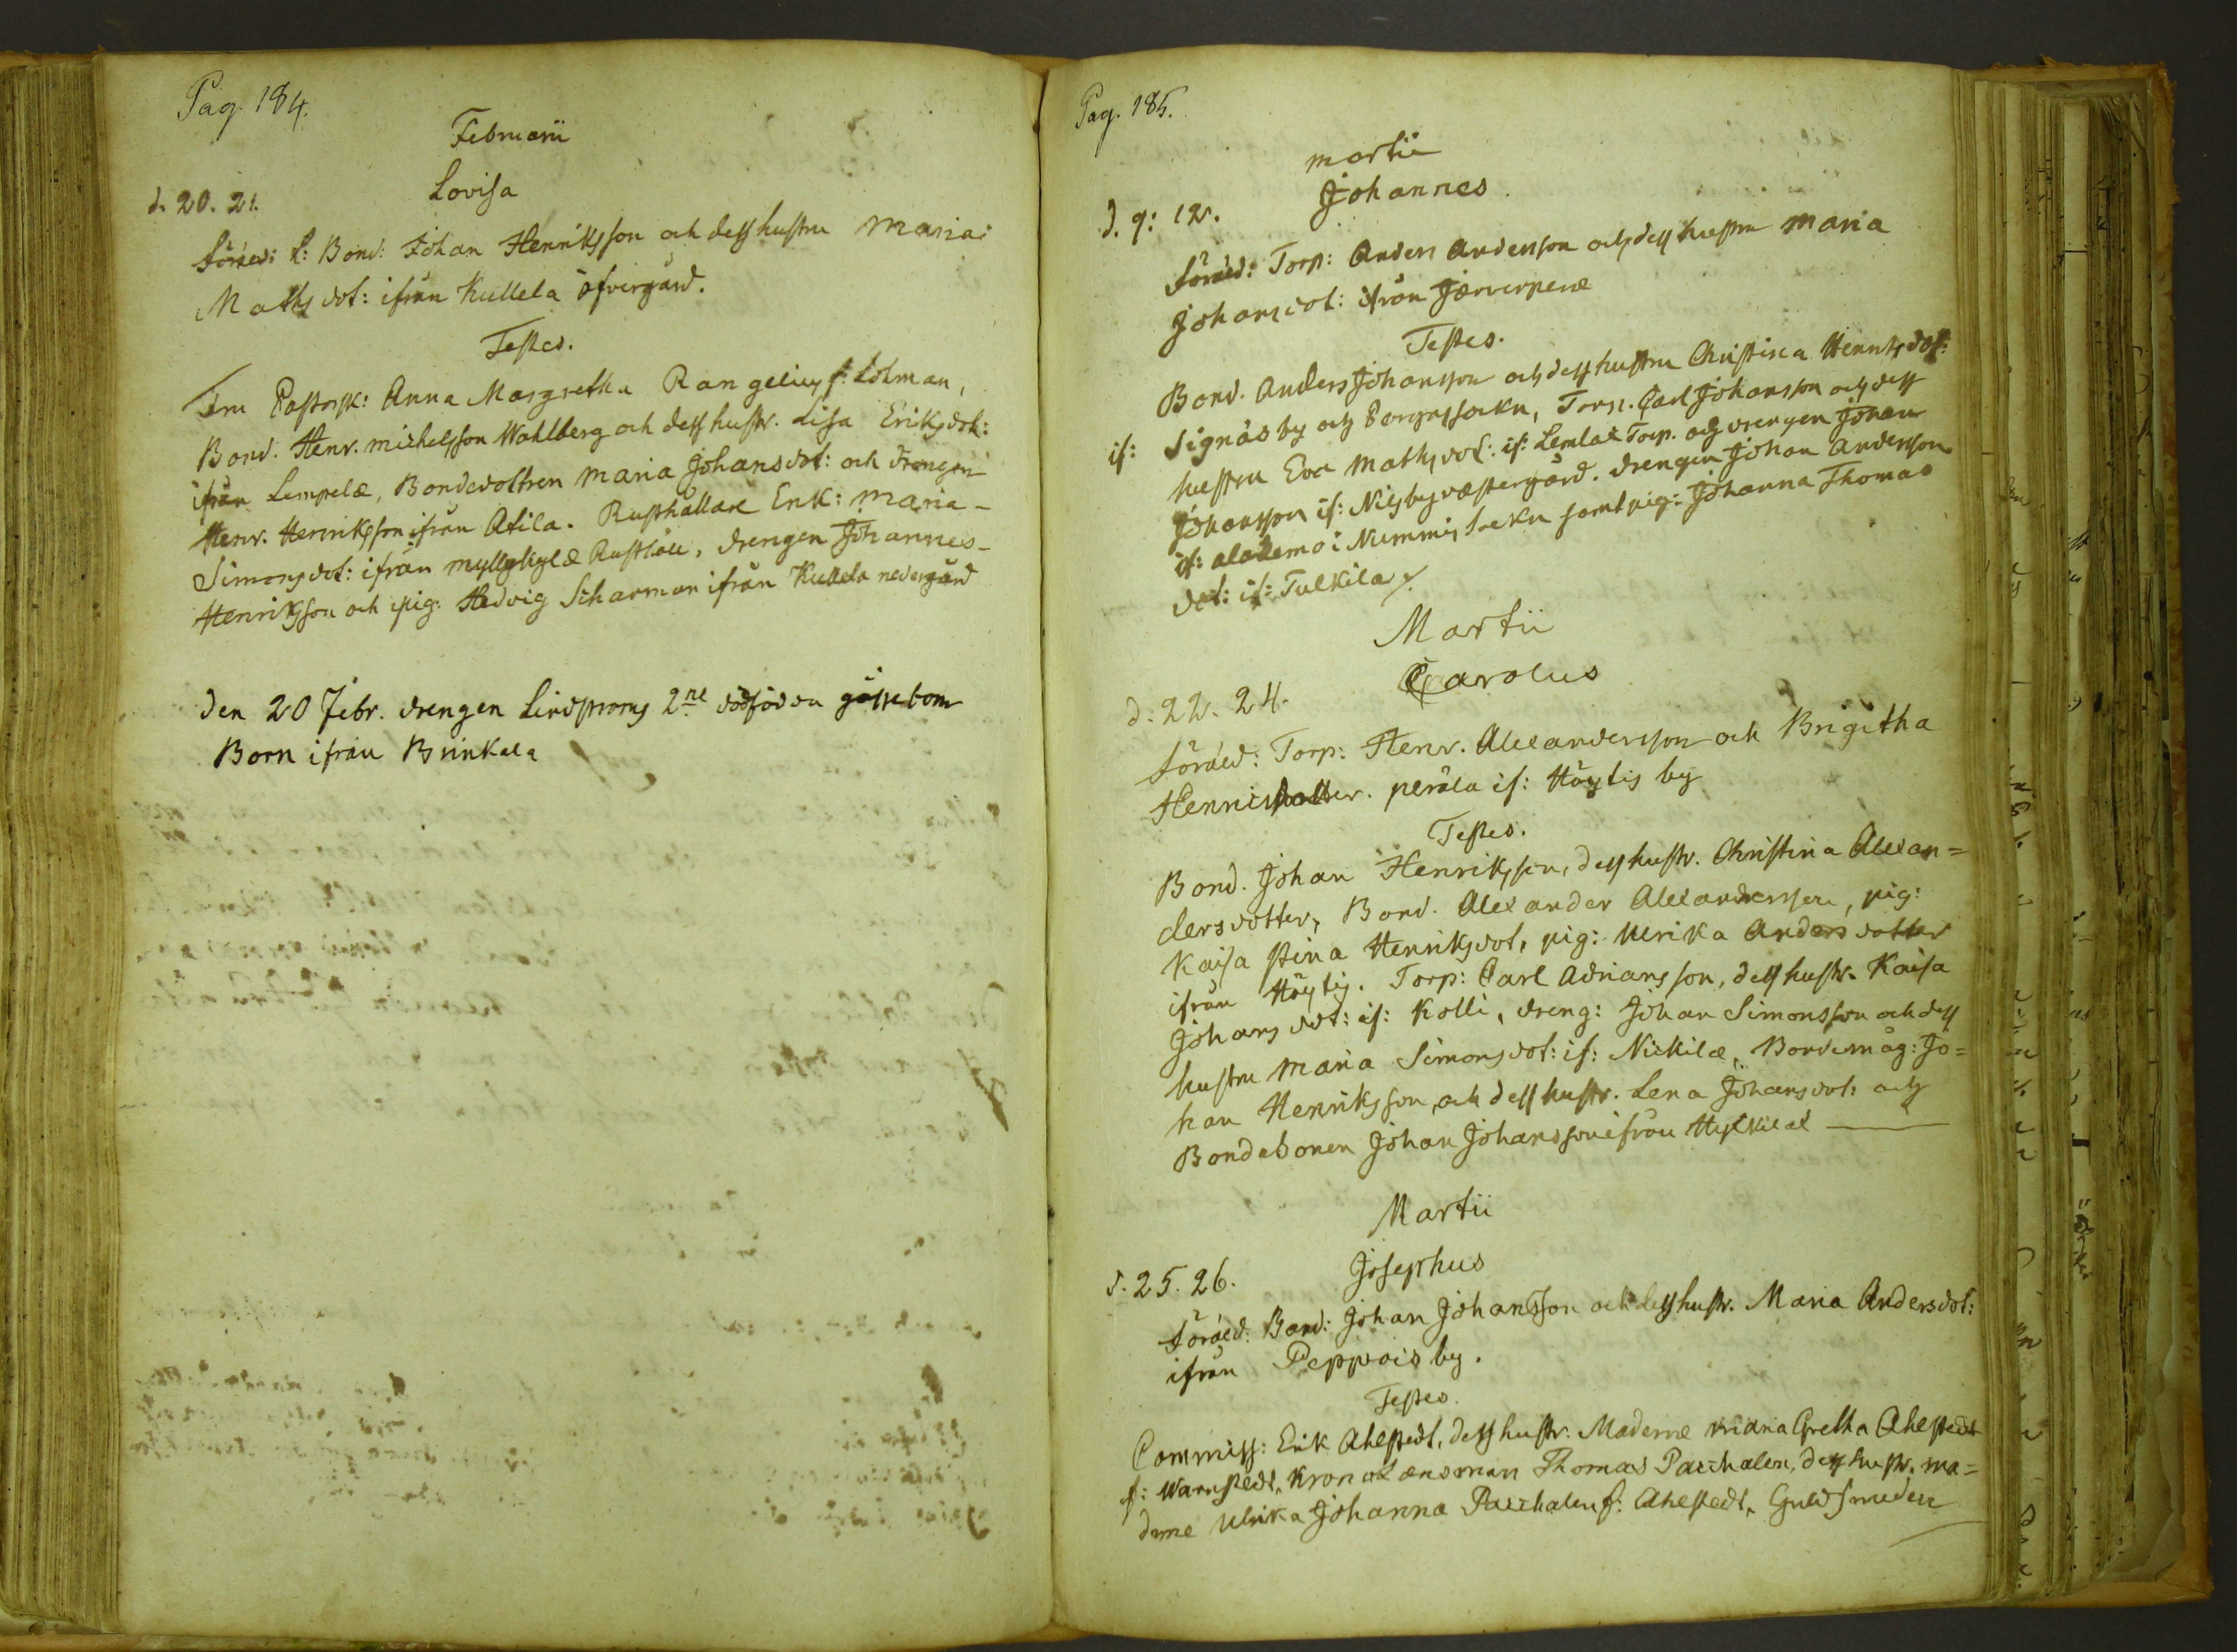 Pag. 184.
Februarii
Lovisa
d. 20. 21.
Föräld: L: Bond: Johan Henriksson och dess hustru Maria
Mathsdot: ifrån Kullela öfvergård.
Testes.
Fru Pastorsk: Anna Margretha Rangelius f: Lohman,
Bond. Henr. Michelsson Wahlberg och dess hustr. Lisa Eriksdot:
ifrån Lempelæ, Bondedottren Maria Johansdot: och Drengen
Henr. Henriksson ifrån Atila. Rusthållare Enk: Maria-
Simonsdot: ifrån Myllykylæ Rusthåll, drengen Johannes-
Henriksson och pig: Hedvig Scharman ifrån Kullela nedergård
Den 20 Febr. drengen Lindstroms 2ne dödfödda gossebarn
Born ifrån Brinkala
Pag. 185.
Martii
Johannes.
d. 9: 12.
Föräld: Torp: Anders Andersson och dess hustru Maria
Johansdot: ifrån Jærverpenæ
Testes.
Bond. Anders Johansson och dess hustru Christina Henriksdot:
if: Signäs by och Borgnessockn, Torp. Carl Johansson och dess
hustru Eva Mathsdot: if: Lemlax Torp. och drengen Johan
Johansson if: Nilsby væstergård. Drengen Johan Andersson
if: Aladerno i Nummis Sockn samt pig: Johanna Thomas
dot: if: Tulkila
Martii
Carolus
d. 22. 24.
Föräld: Torp: Henr. Alexandersson och Brigitha
Henrisdotter. perála if: Höytis by
Testes.
Bond. Johan Henriksson, dess hustr. Christina Alexan=
dersdotter, Bond. Alexander Alexandersson, pig:
Kaisa Stina Henriksdot, pig: Ulrika Andersdotter
ifrån Höytis. Torp: Carl Adriansson, dess hustr. Kaisa
Johansdot: if: Kolli, dreng: Johan Simonsson och dess
hustru Maria Simonsdot: if: Nickilæ, Bondemåg: Jo=
han Henriksson, och dess hustr. Lena Johansdot: och
Bondesonen Johan Johansson ifrån Hyckilæ
Martii
Josephus
d. 25. 26.
Föräld: Bond: Johan Johansson och dess hustr. Maria Andersdot:
ifrån Peppois by.
Testes.
Commiss: Erik Ahlstedt, dess hustr. Madame Maria Gretha Ahlstedt
f: Warnstedt, Kronolænsman Thomas Paschalen, dess hustr. Ma=
dame Ulrika Johanna Paschalen f: Ahlstedt, Guldsmeden